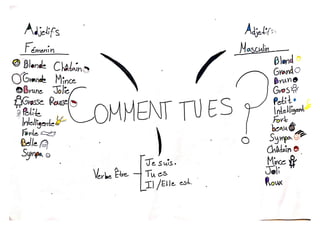 Adjetifs
Féminin
Blonde Châtain
Grande Mince
Brune Jolie
Grosse Rousse
Petite
Intelligente
Forte
Belle
Sympa
COMMENT TU ES ?
Verbe Être
Je suis.
Tu es
Il/Elle est.
Adjetifs:
Masculin
Blond
Grand
Brun
Gros
Petit
Intelligent
Fort
beau
Sympa
Châtain
Mince
Joli
Roux